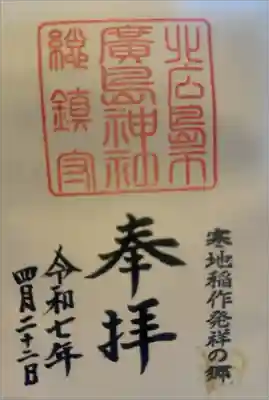 北広島市
廣島神社
総鎮守
寒地稲作発祥の郷
奉拝
令和七年
四月二十二日